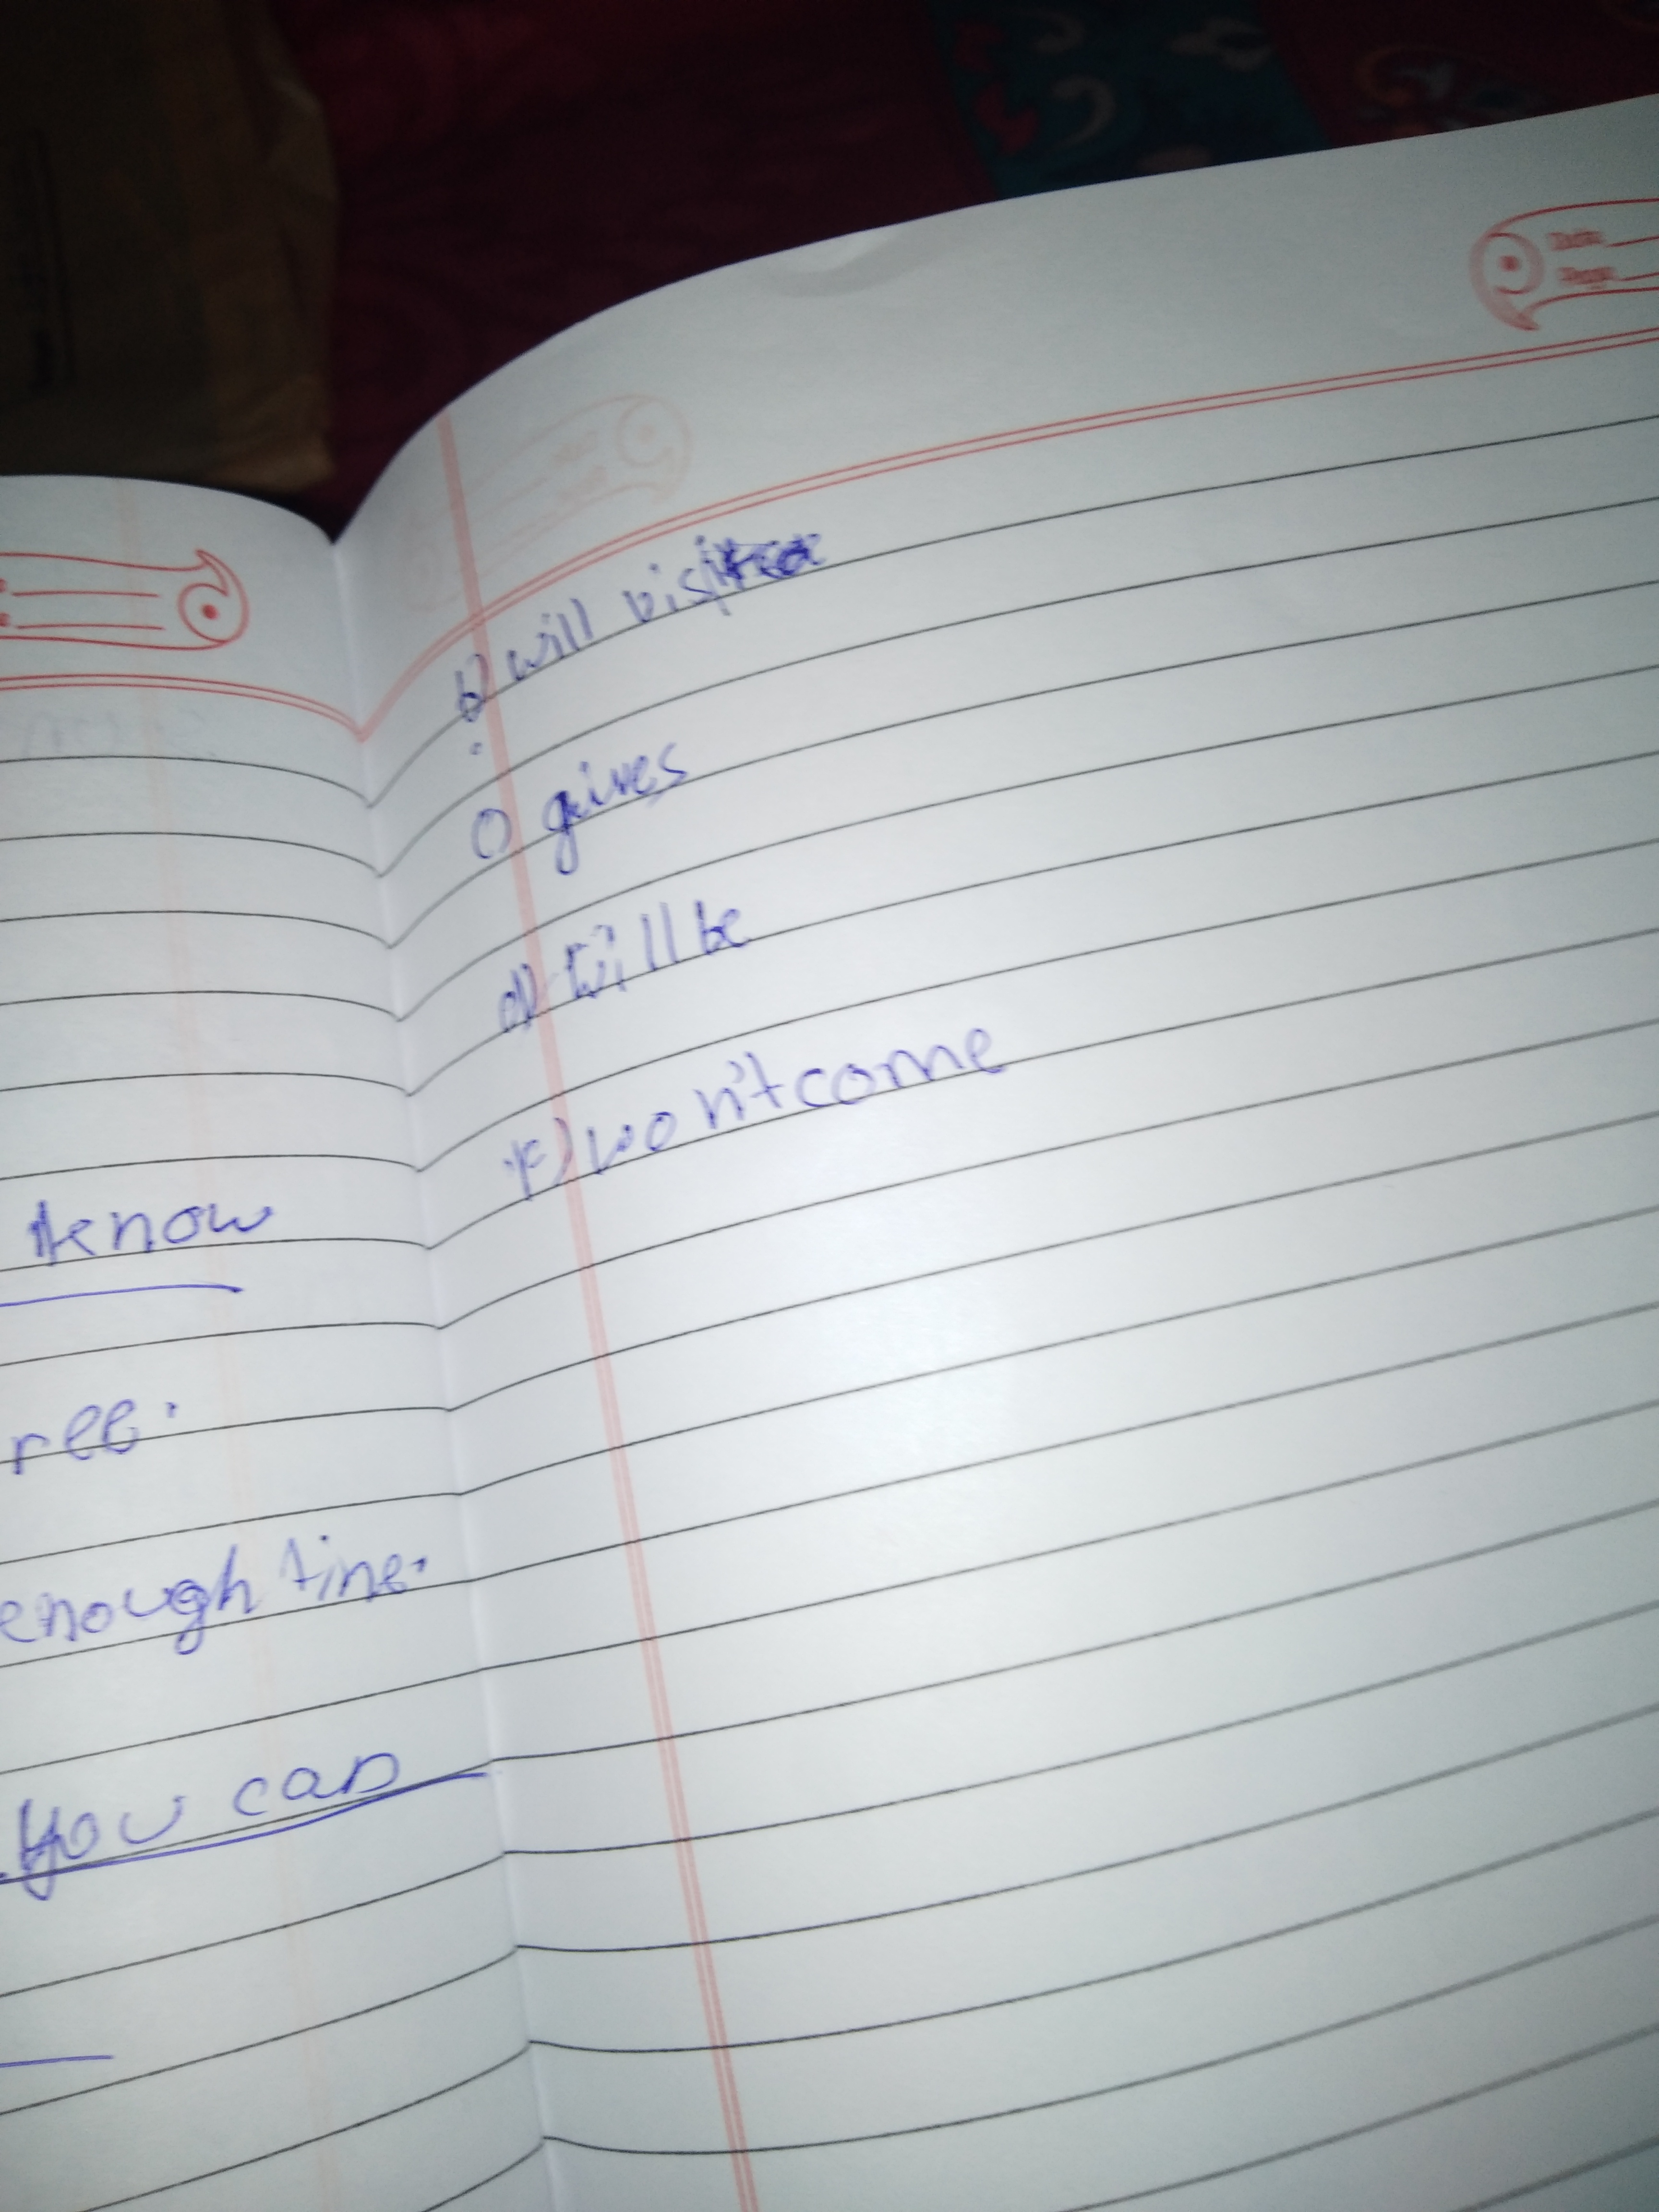 know
ree.
enough tine.
you can
b) will visit
() gives
d) will be
F) won't come